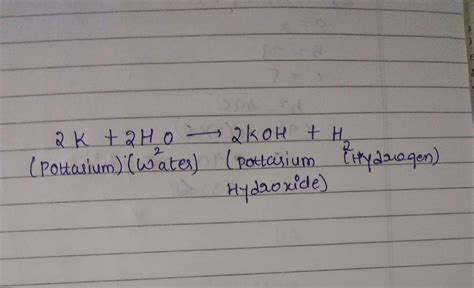 2K + 2H₂O → 2KOH + H₂
(Pottasium) (Water) (Pottasium (Hydrogen)
Hydroxide)